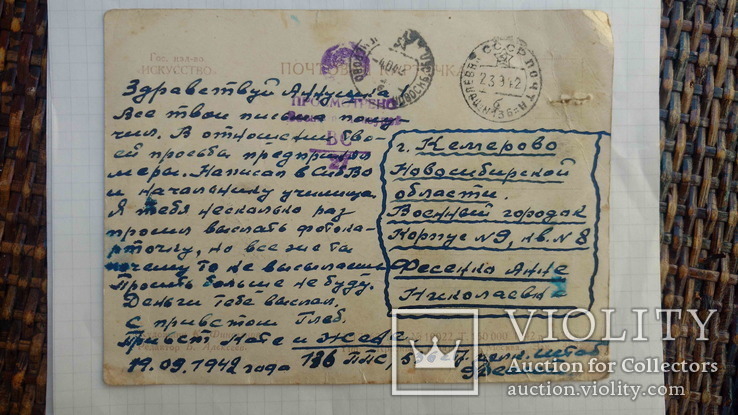 Гос. изд-во
"ИСКУССТВО"
ПОЧТОВАЯ КАРТОЧКА
ПРОСМОТРЕНО
СССР ПОЧТА
23 9 42
Здравствуй Аннушка!
Все твои письма полу
чил. В отношении сво
ей просьбы предпринял
меры. Написал в СибВО
и начальнику училища.
Я тебя несколько раз
просил выслать фотока-
рточку, но все же ты
почему то не высылаешь
Просить больше не буду.
Деньги тебе выслал.
С приветом Глеб.
Привет Нате и Жеве
19.09.1942 года 186 ППС,
штаб
г. Кемерово
Новосибирской
области.
Военный городок
Корпус №9, кв. №8
Фесенко Анне
Николаевне
VIOLITY
Auction for Collectors
auction.violity.com